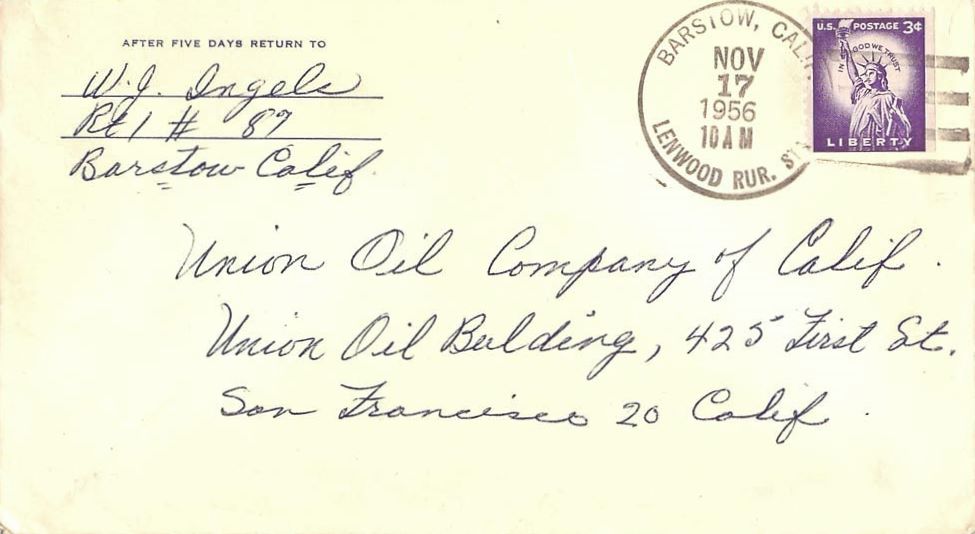 AFTER FIVE DAYS RETURN TO
W. J. Ingels
Rt 1 # 87
Barstow Calif.
BARSTOW, CALIF.
NOV
17
1956
10 AM
LENWOOD RUR. STA.
U.S. POSTAGE 3¢
IN GOD WE TRUST
LIBERTY
Union Oil Company of Calif.
Union Oil Building, 425 First St.
San Francisco 20 Calif.